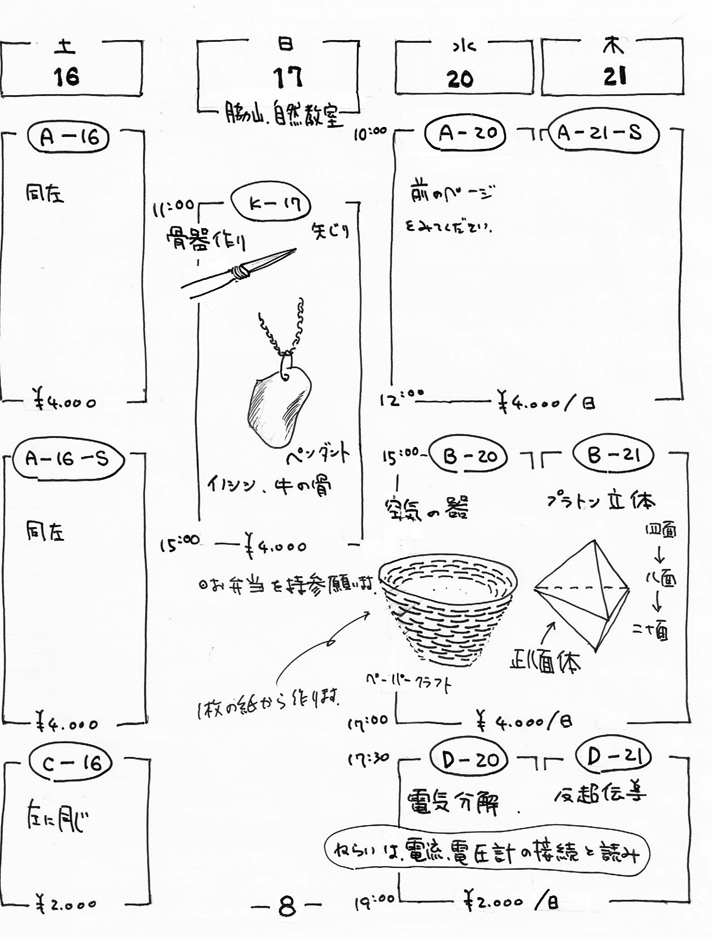 土
16
A-16
同左
¥4.000
A-16-S
同左
¥4.000
C-16
左に同じ
¥2.000
日
17
脇山.自然教室
11:00
K-17
骨器作り
矢じり
ペンダント
イノシシ、牛の骨
15:00
¥4.000
◎お弁当を持参願います.
1枚の紙から作ります.
水
20
木
21
10:00
A-20
A-21-S
前のページ
をみてください.
12:00
¥4.000/日
15:00
B-20
B-21
空気の器
プラトン立体
四面
↓
八面
↓
二十面
正八面体
ペーパークラフト
17:00
¥4.000/日
17:30
D-20
D-21
電気分解.
反超伝導
ねらいは、電流、電圧計の接続と読み
19:00
¥2.000/日
-8-